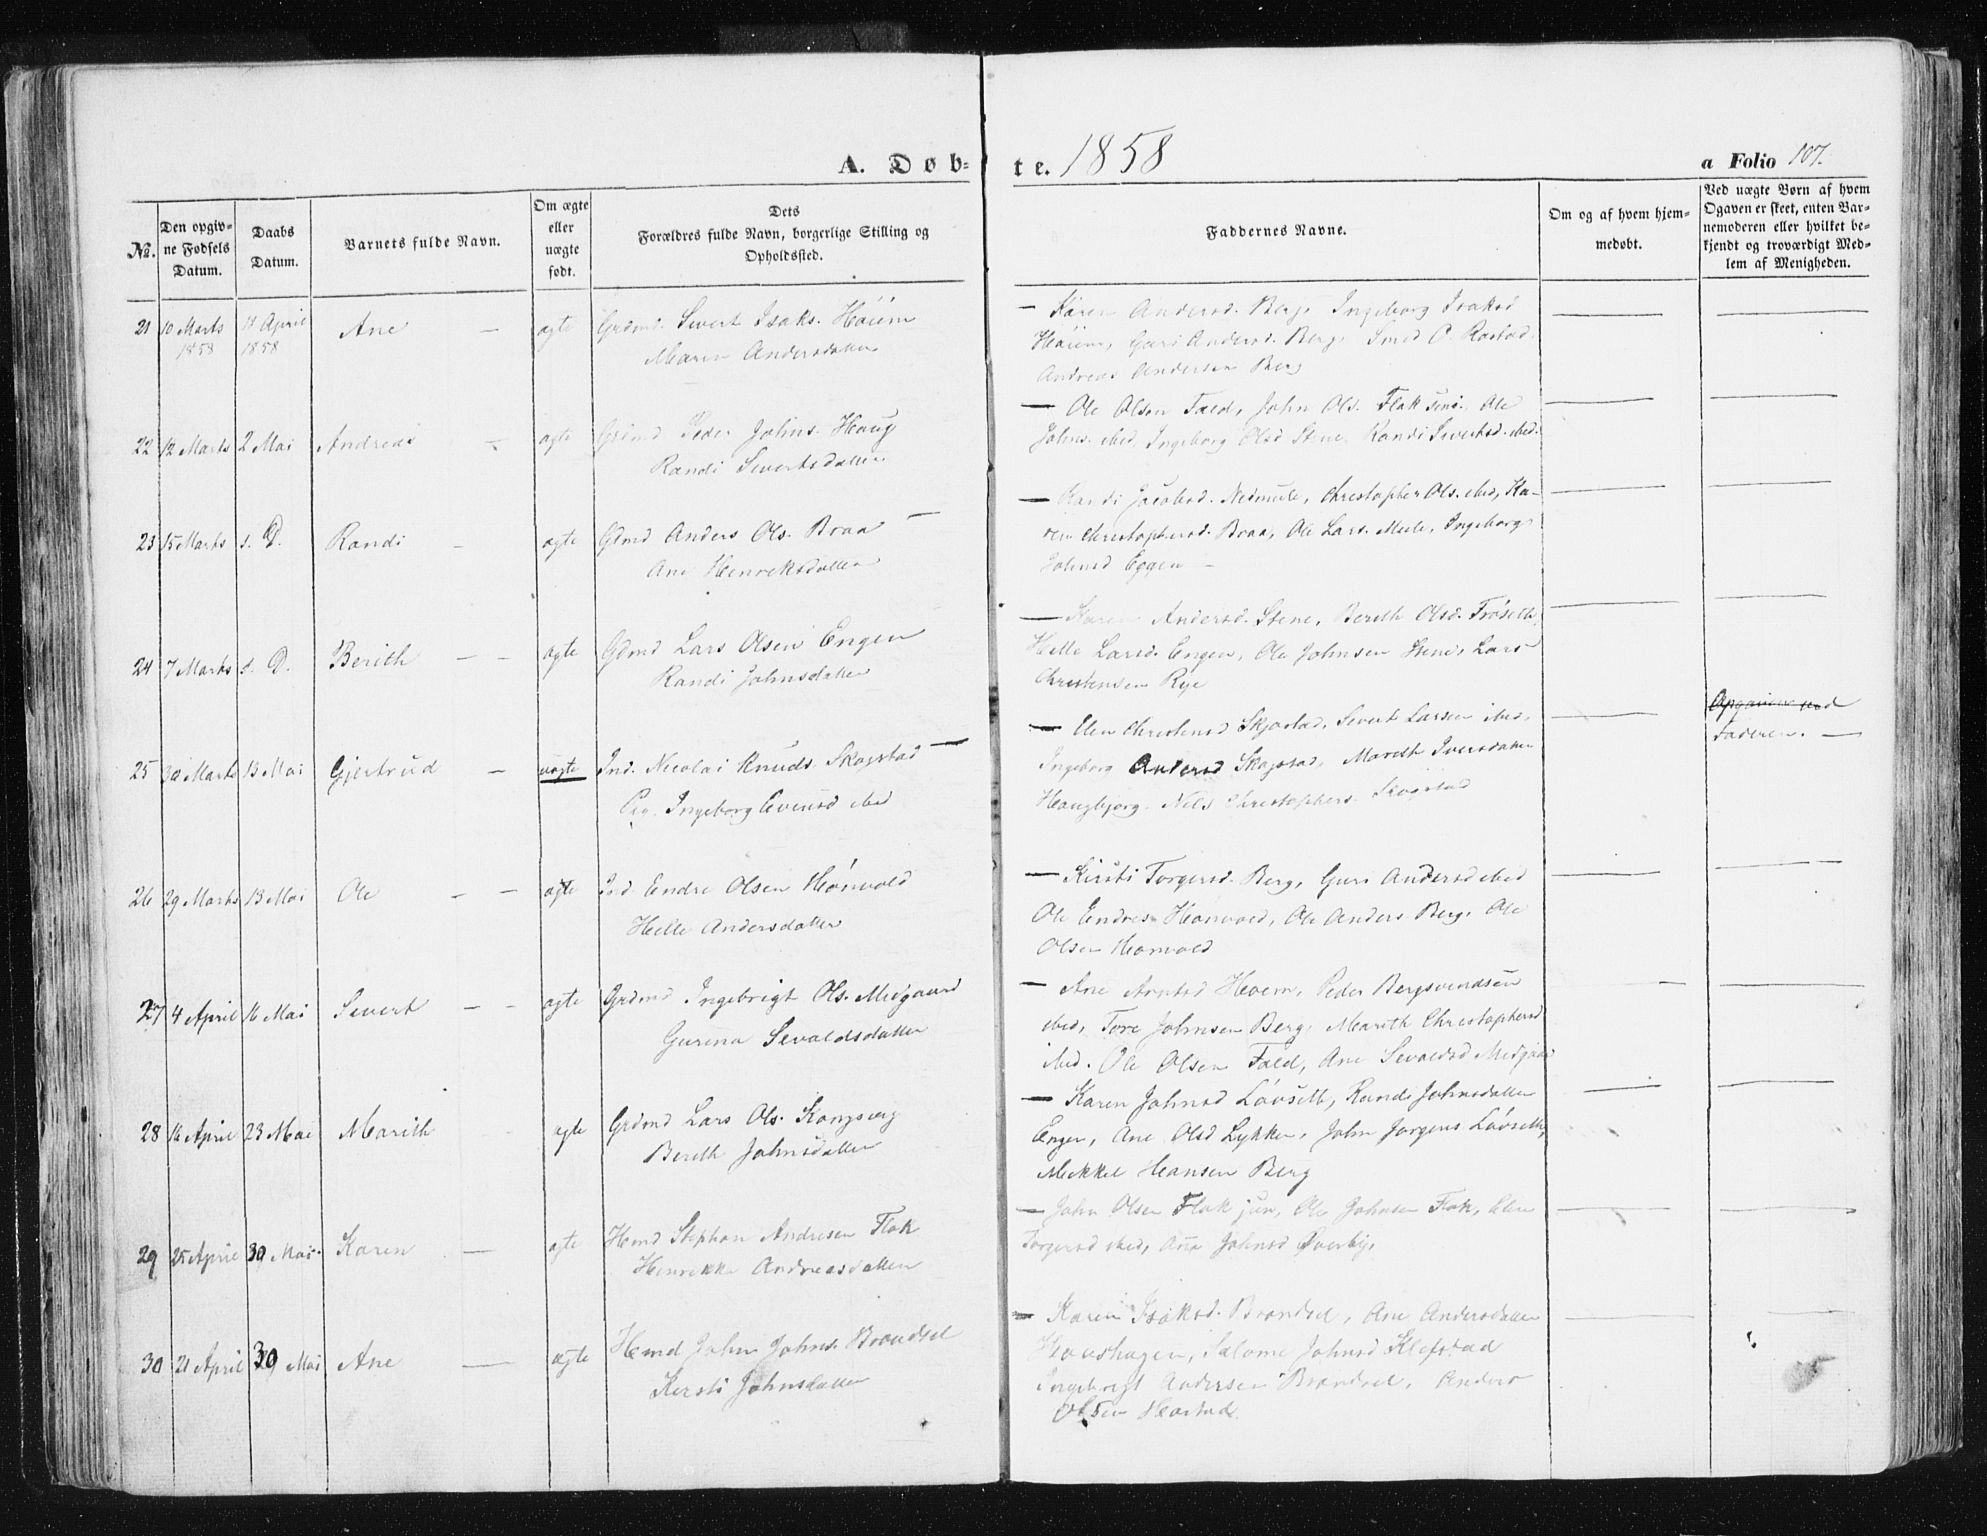 A. Døb-
te. 1858
a Folio 107.
No.
Den opgiv-
ne Fødsels
Datum.
Daabs
Datum.
Barnets fulde Navn.
Om ægte
eller
uægte
født.
Dets
Forældres fulde Navn, borgerlige Stilling og
Opholdssted.
Faddernes Navne.
Om og af hvem hjem-
medøbt.
Ved uægte Børn af hvem
Ogaven er skeet, enten Bar-
nemoderen eller hvilket be-
kjendt og troværdigt Med-
lem af Menigheden.
21 10 Marts 1858 11 April 1858 Ane — ægte Grdmd. Sivert Isaks. Høiem
Maren Andersdatter
— Karen Andersd. Berg, Ingeborg Isaksd
Høiem, Guri Andersd. Berg, O. Rostad,
Andreas Andersen Berg
22 12 Marts 2 Mai Andreas — ægte Grdmd Peder Johns. Haug
Randi Sivertsdatter
— Ole Olsen Fald, John Ols. Flak sen., Ole
Johns. ibid, Ingeborg Olsd Stene, Randi Sivertsd. ibid.
23 15 Marts s. D. Randi — ægte Gdmd Anders Ols. Braa —
Ane Henriksdatter
— Randi Jacobsd. Nedmule, Christopher Ols. ibid, Ka-
ren Christophersd. Braa, Ole Lars. Mule, Ingeborg
Johnsd Eggen —
24 7 Marts s. D. Berith — — ægte Gdmd Lars Olsen Engen
Randi Johnsdatter
— Karen Andersd. Stene, Berith Olsd. Frøseth,
Helle Larsd. Engen, Ole Johnsen Stene, Lars
Christensen Rye
25 30 Marts 13 Mai Gjertrud — uægte Ind. Nicolai Knuds. Skogstad —
Pig. Ingeborg Evensd ibid
— Elen Christensd Skjøstad, Sivert Larsen ibid,
Ingeborg Andersd Skogstad, Mareth Iversdatter
Haugbjørg, Nils Christophers. Skogstad
Faderen. —
26 29 Marts 13 Mai Ole — — ægte Ind. Endre Olsen Hønvold
Helle Andersdatter
— Kirsti Torgersd. Berg, Guri Andersd ibid
Ole Endresn Hønvold, Ole Anders Berg, Ole
Olsen Hønvold
27 4 April 16 Mai Sivert — — ægte Grdmd Ingebrigt Ols. Midgaard
Gurina Sevaldsdatter
— Ane Arntsd Hoem, Peder Bergsvendsen
ibid, Tore Johnsen Berg, Marith Christophersd
ibid. Ole Olsen Fald, Ane Sevaldsd Midgaard
28 16 April 23 Mai Marith ægte Grdmd Lars Ols. Kongsveg
Berith Johnsdatter
— Karen Johnsd Løvseth, Randi Johnsdatter
Engen, Ane Olsd Lykken, John Jørgens Løvseth,
Mikkel Hansen Berg
29 25 April 30 Mai. Karen — ægte Hmd Stephan Andresen Flak
Henrikke Andreasdatter
— John Olsen Flak jun, Ole Johnsen Flak, Elen
Torgersd ibid, Ane Johnsd Øverby,
30 21 April 30 Mai Ane — ægte Hmd John Johns. Brandsel
Kersti Johnsdatter
— Karen Isaksd. Brandsel, Ane Andersdatter
Haushagen, Salome Johnsd Klefstad
Ingebrigt Andersen Brandsel, Anders
Olsen Harstad.